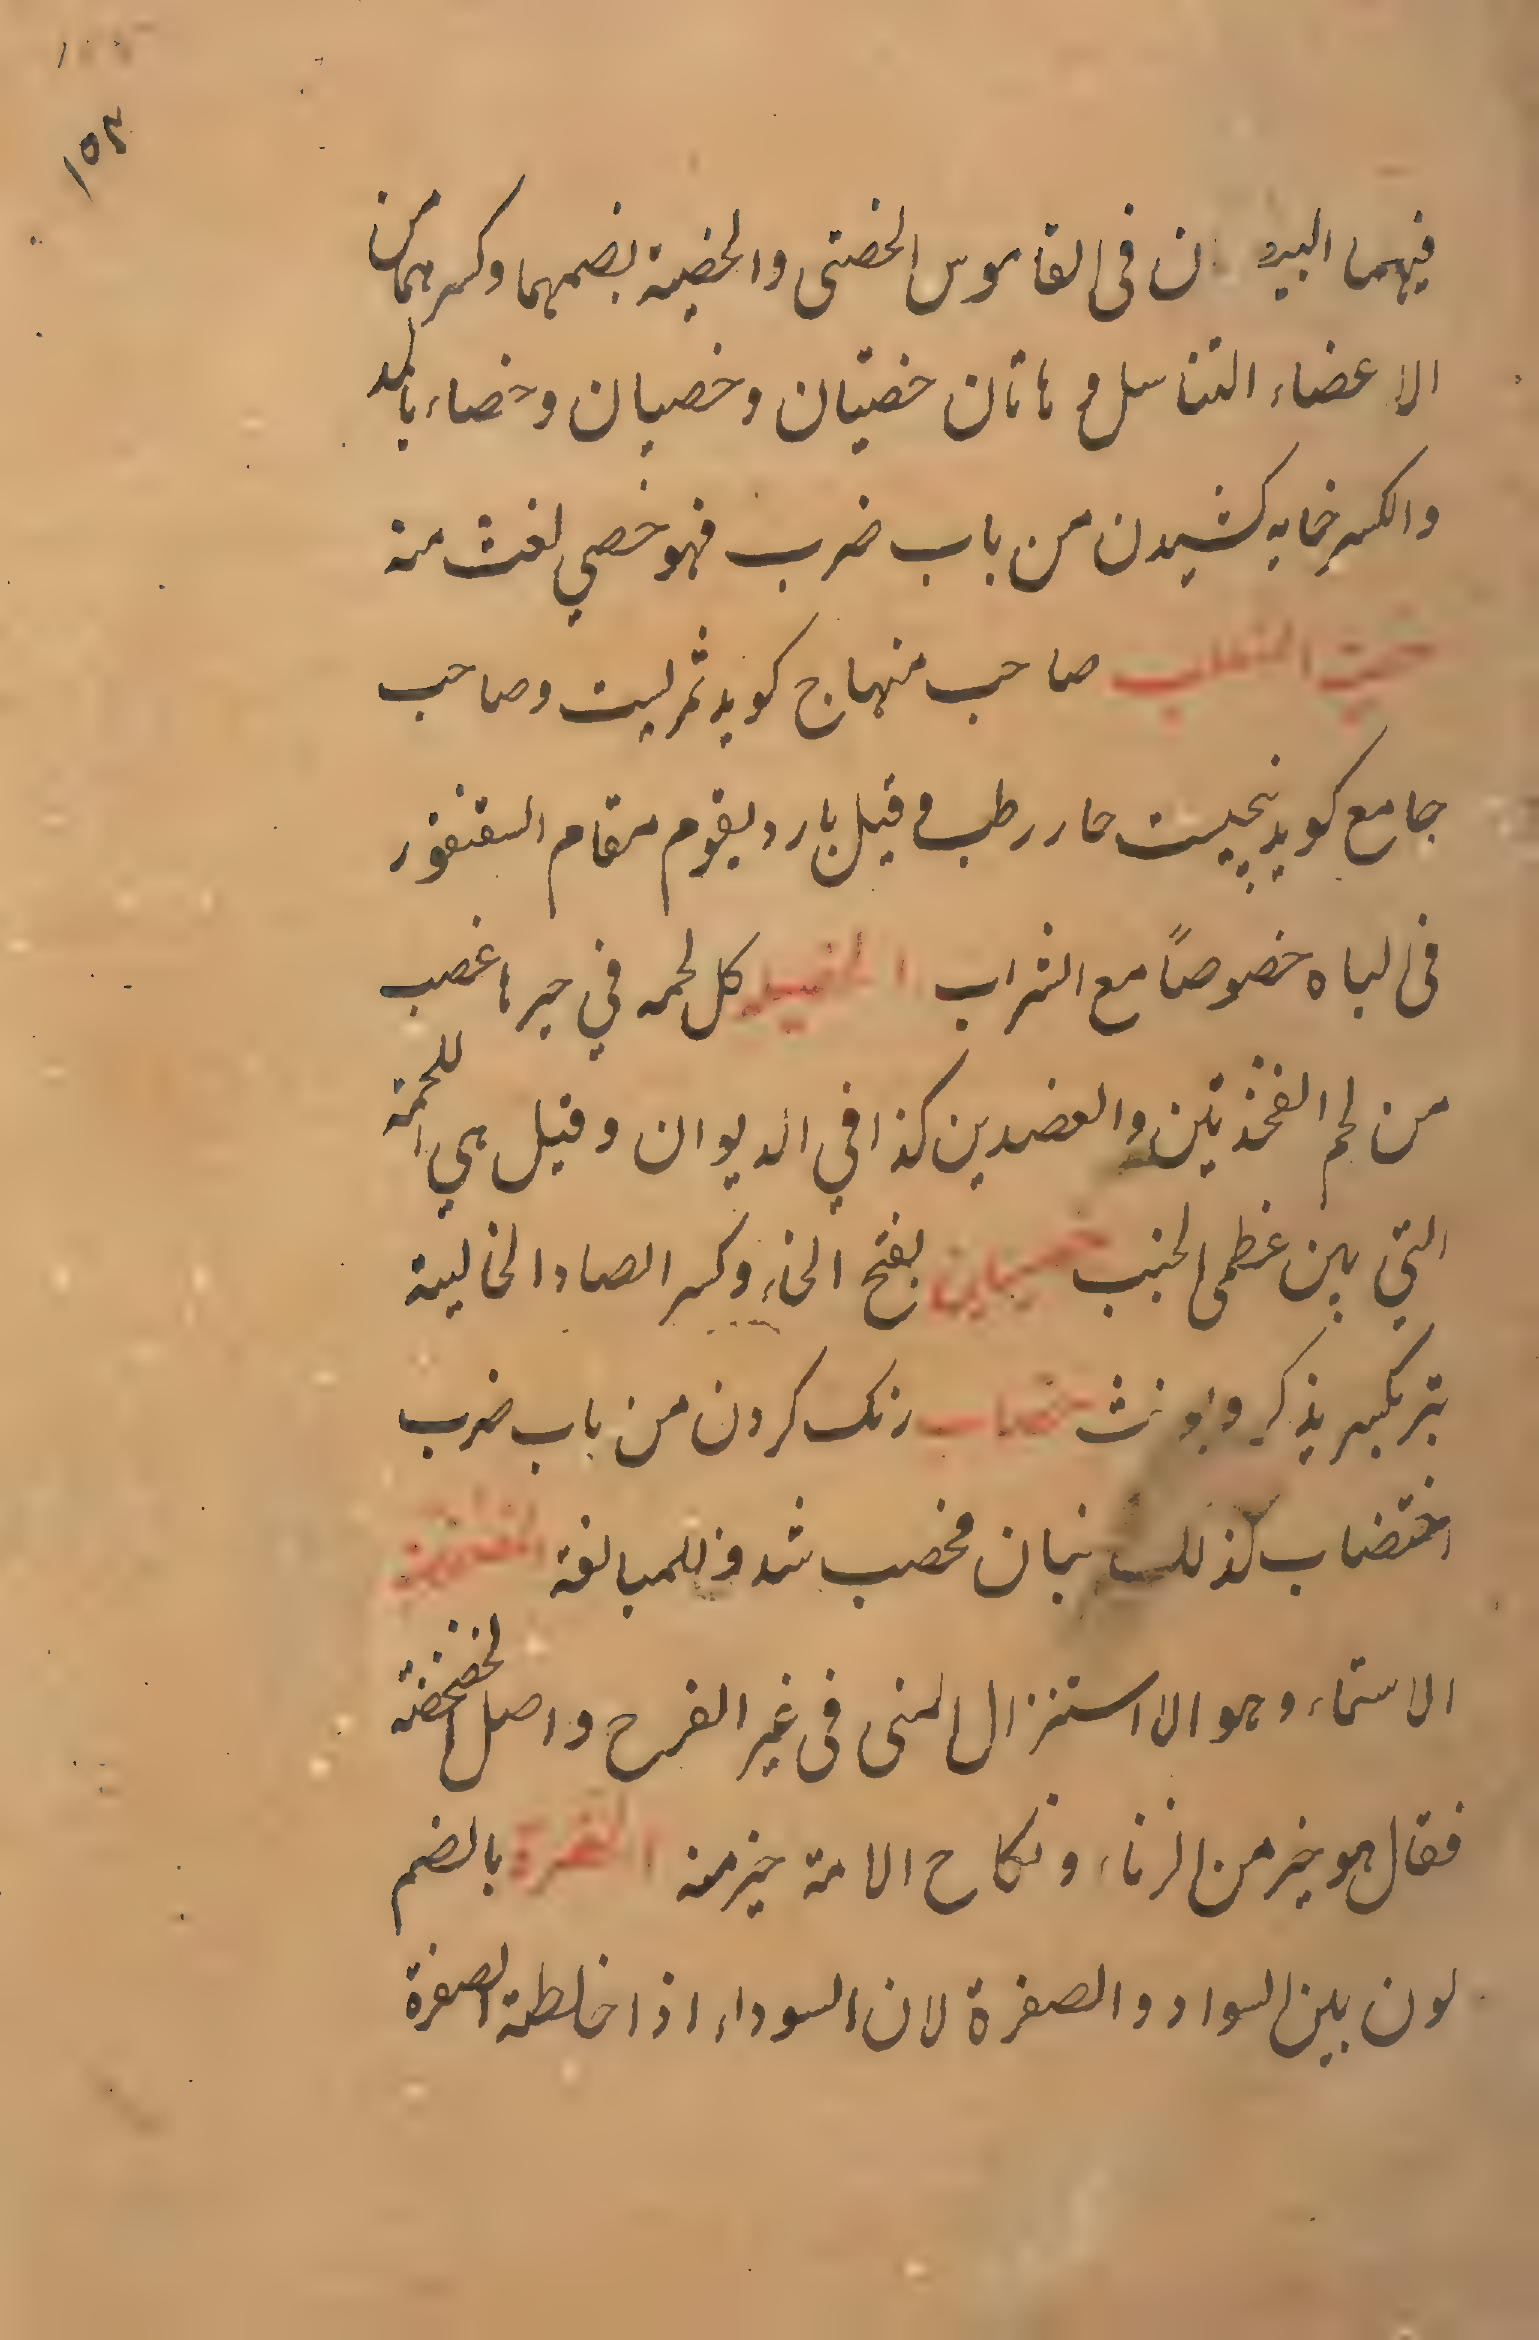 ۱۵۳
فیهما البید ن فی القاموس الخصی والخصیة بضمهما وکسرهما من
الاعضاء التناسل و هاتان خصیتان وخصیان وخصاء بالمد
والکسر خایه کشیدن من باب ضرب فهو خصي لغث منه
خصیة الثعلب صاحب منهاج کوید ثمریست وصاحب
جامع کوید بیخیست حار رطب و قیل بارد یقوم مقام السقنقور
فی الباه خصوصاً مع الشراب الخصیله کل لحمه في حیرها عصب
من لحم الفخذین والعضدین کذا في الدیوان وقیل هي اللحمة
التي بین عظمی الجنب خصیلتین بفتح الخاء وکسر الصاد الخالیة
یذکر ویونث خضاب رنک کردن من باب ضرب
اختضاب کذلک بنان مخضب شدد للمبالغة الخضخضة
الاستمناء وهو الااستنزال المنی فی غیر الفرج واصل الخضخضة
فقال هو خیر من الزناء ونکاح الامة خیر منه الخضرة بالضم
لون بین السواد والصفرة لان السوداء اذا خلطة الصفرة